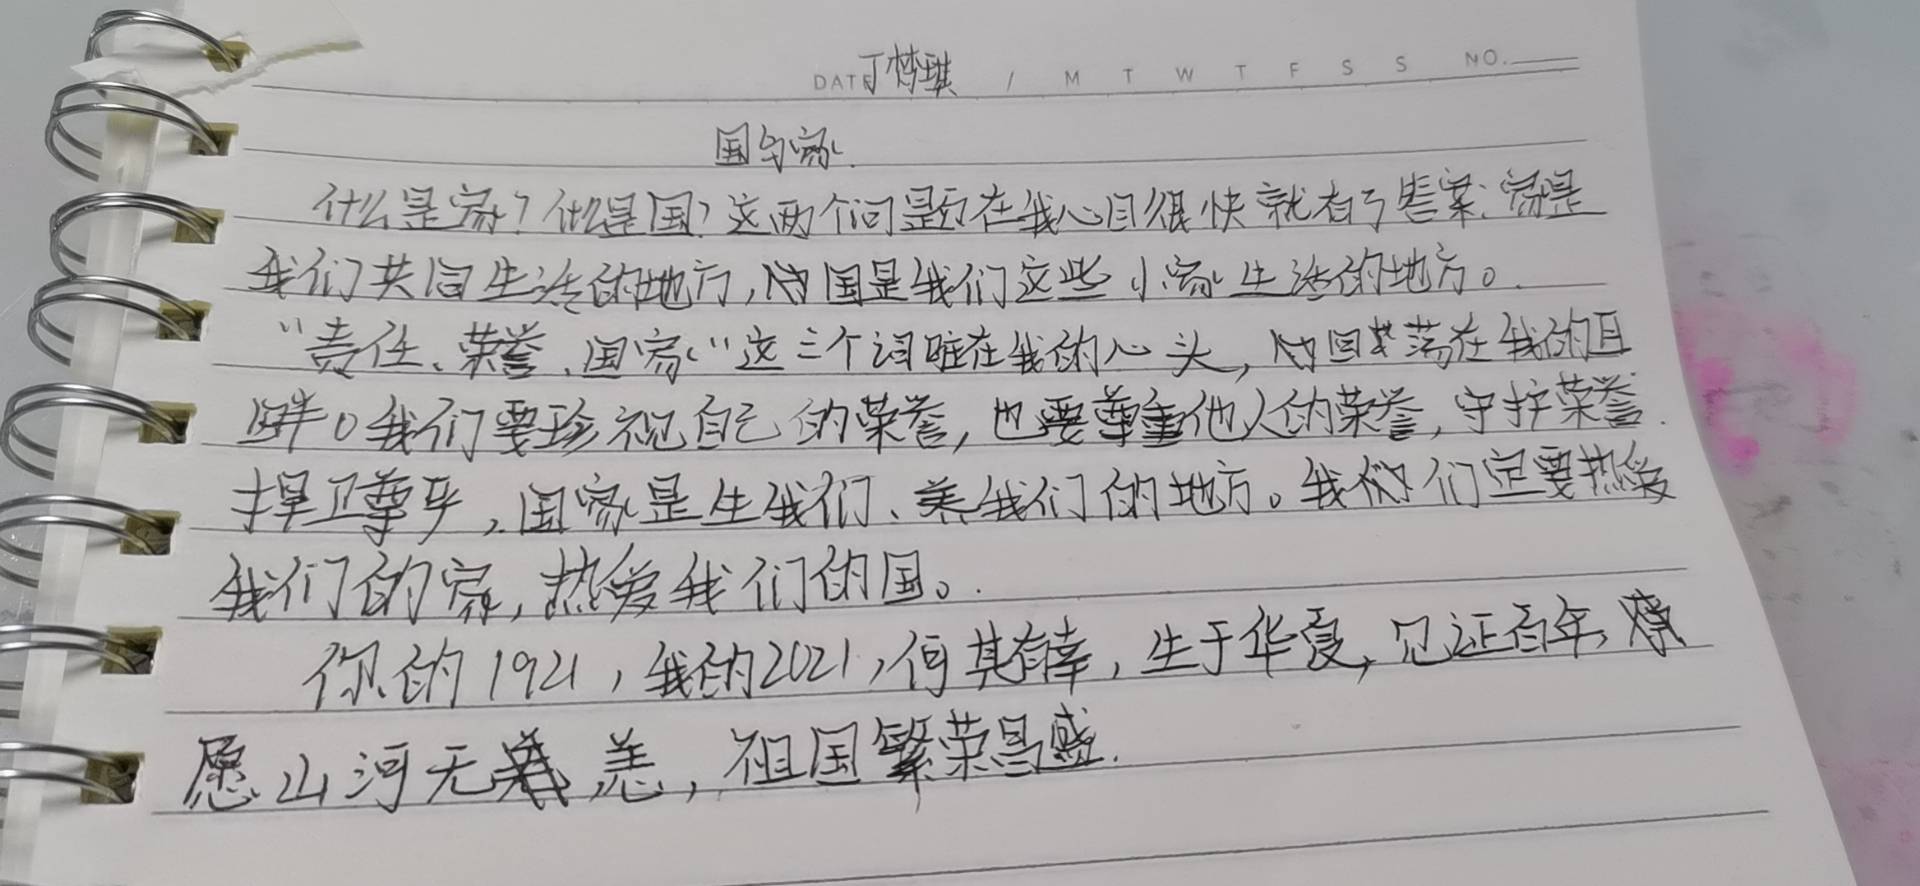 DATE 丁梦琪 / M T W T F S S NO.
国与家.
什么是家?什么是国?这两个问题在我心目很快就有了答案:家是
我们共同生活的地方,而国是我们这些小家生活的地方。
"责任、荣誉、国家"这三个词唯在我的心头,而国其荡在我的耳
畔。我们要珍视自己的荣誉,也要尊重他人的荣誉,守护荣誉.
捍卫尊严,国家是生我们、养我们的地方。我们定要热爱
我们的家,热爱我们的国。
你的1921,我的2021,何其有幸,生于华夏,见证百年,
愿山河无恙,祖国繁荣昌盛.